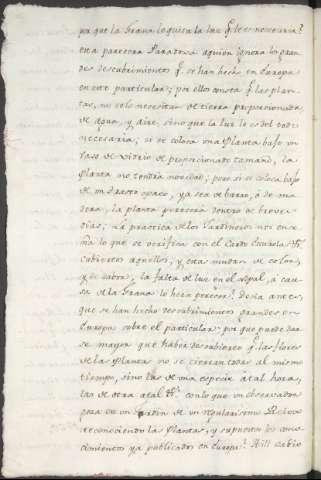 ya que la Grana lo quita la luz q.e le es necesaria?
esta parecera Paradoxa a quien ignora los gran
des descubrimientos q.e se han hecho en Europa
en este particular; por ellos consta q.e las plan
tas, no solo necesitan de tierra proporcionada
de agua, y aire, sino que la luz les es del todo
necesaria; si se coloca una Planta bajo un
vaso de vidrio de proporcionado tamaño, la
Planta no tendrá novedad; pero si se coloca bajo
de un trasto opaco, ya sea de barro, ó de ma
dera, la planta perecerá dentro de breves
dias; la practica de los Jardineros nos ense
ña lo que se verifica con el Cardo Escarola &.
cubiertos aquellos, y estas mudan de color,
y de sabor; la falta de luz en el nopal, á cau
sa de la Grana lo hera perecer? Dexa antes,
que se han hecho descubrimientos grandes en
Europa sobre el particular; por que puede dar
se mayor que haber descubierto q.e las flores
de las Plantas no se cierran todas al mismo
tiempo, sino las de una especie á tal hora,
las de otra á tal &. con lo que un observador
para en un Jardin de un regularisimo Relox
reconociendo las Plantas, y supuestos los cono
cimientos ya publicados en Europa? Hill sabio